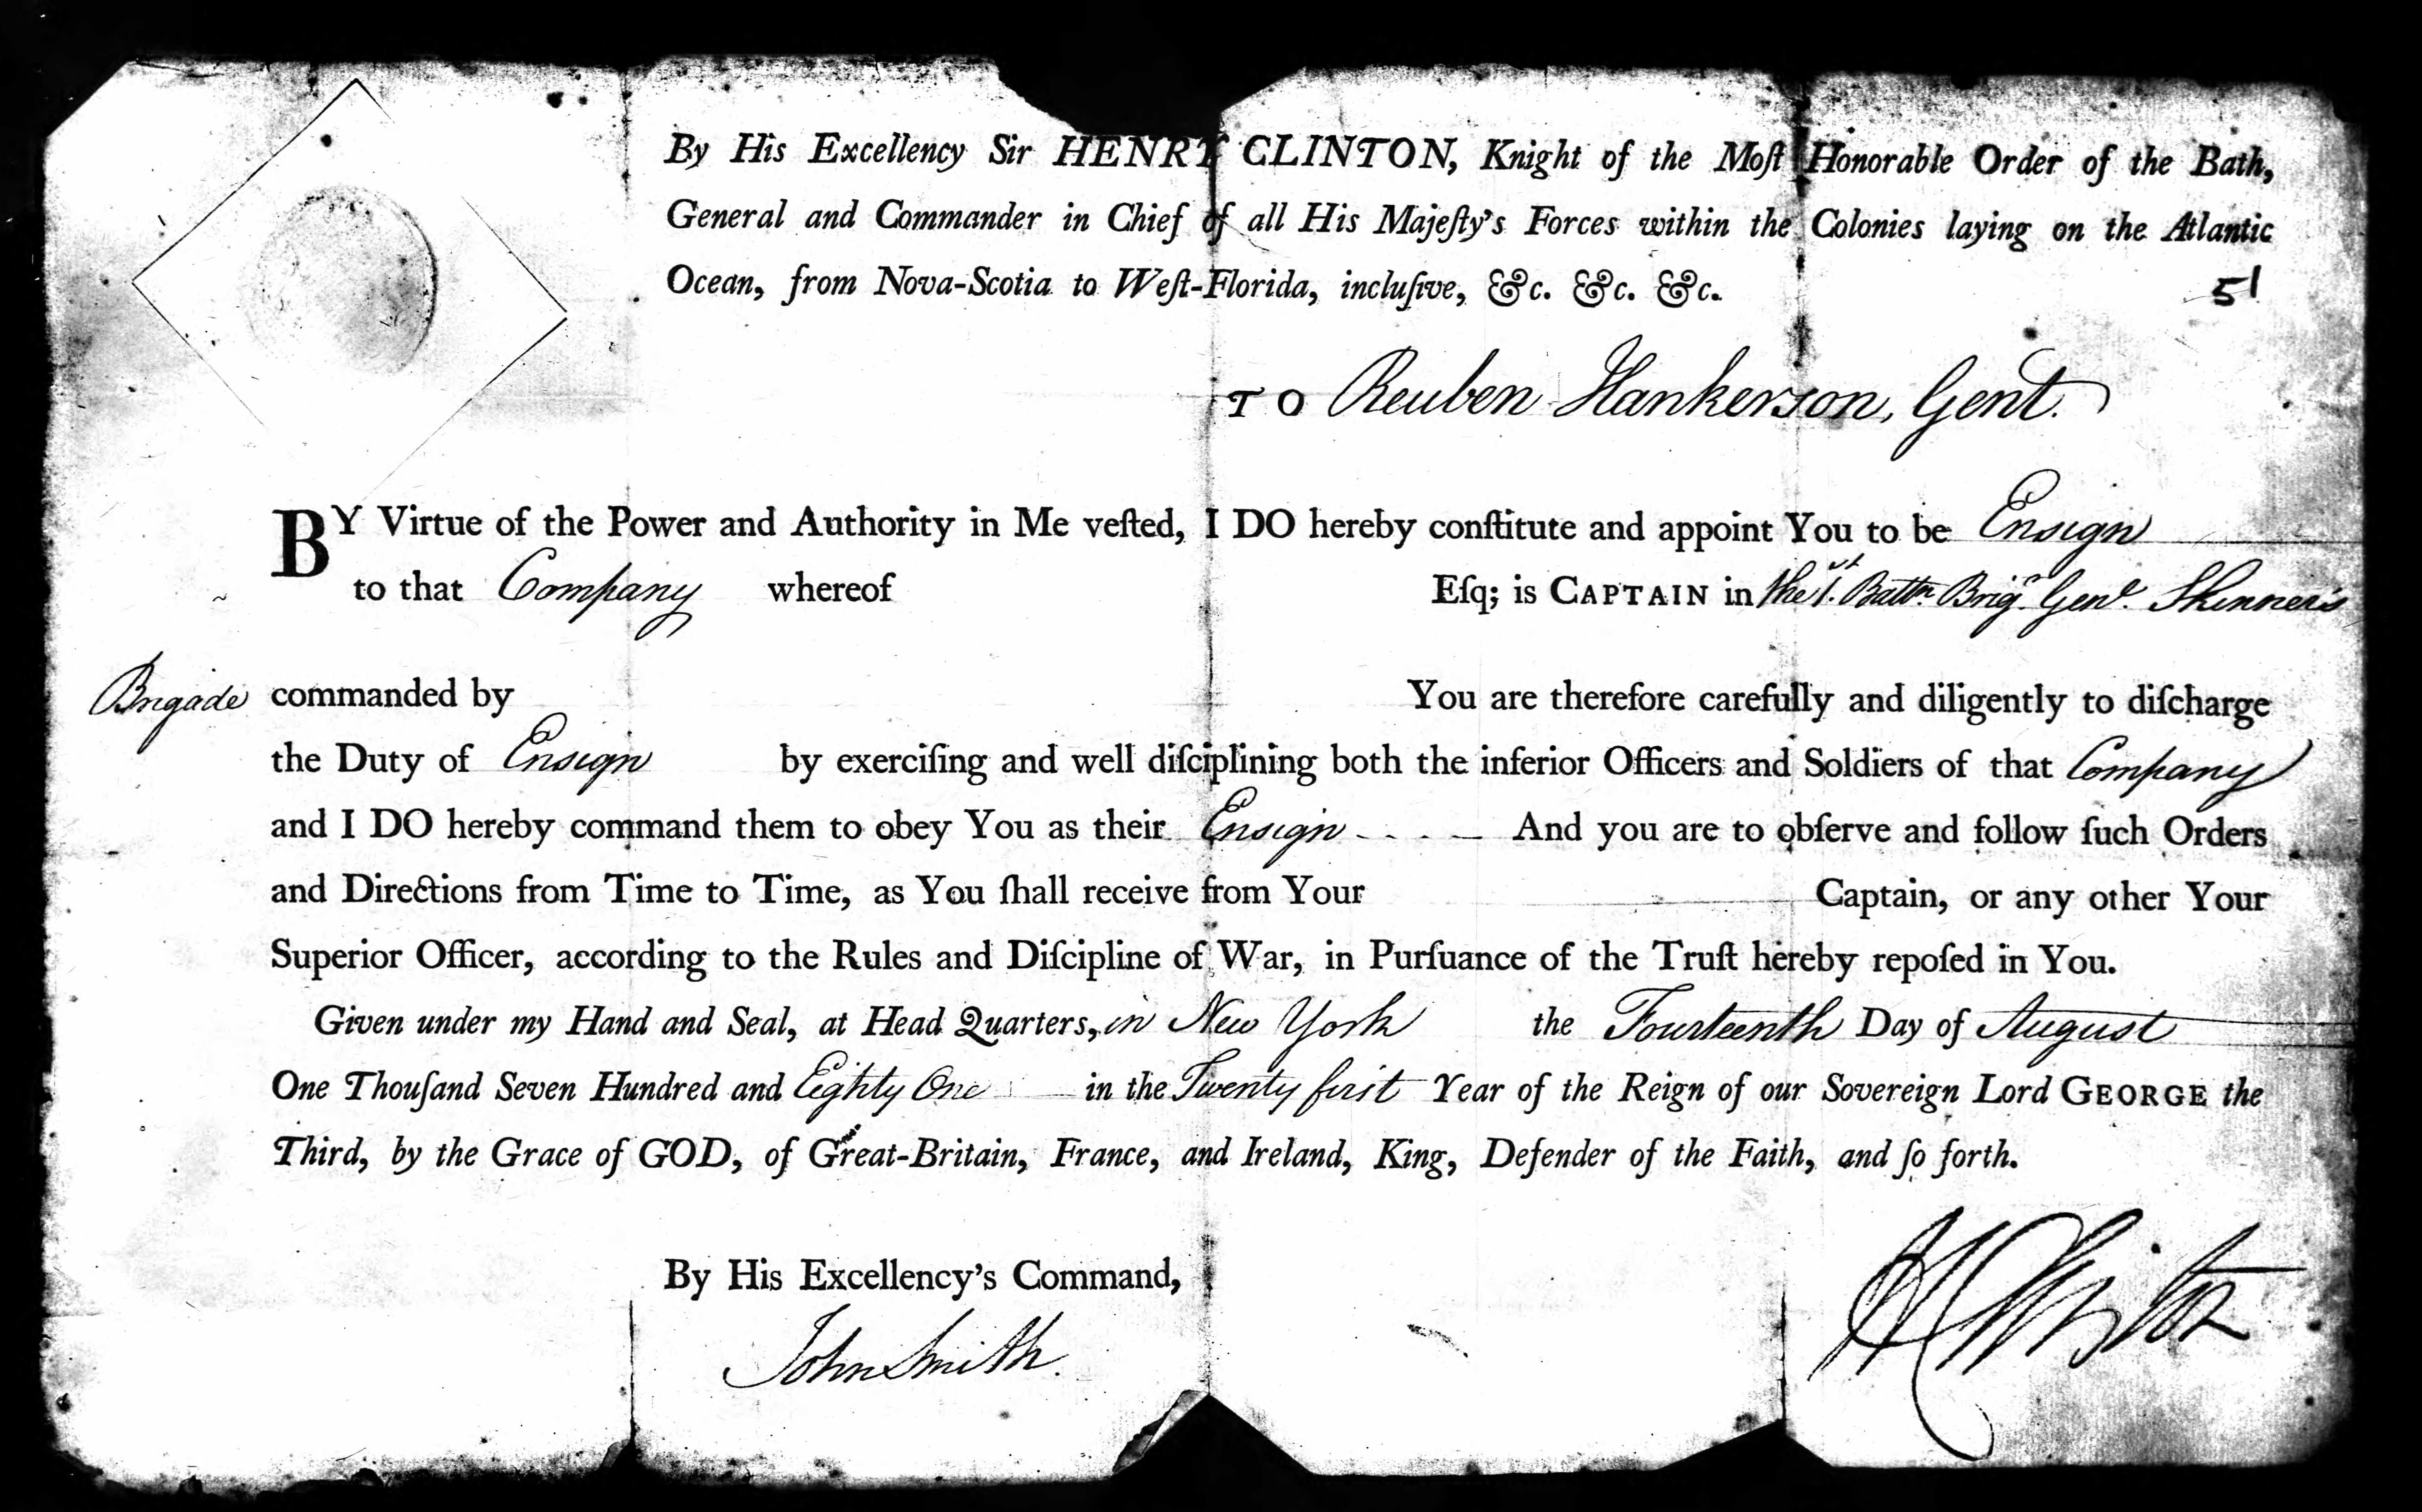 By His Excellency Sir HENRY CLINTON, Knight of the Moſt Honorable Order of the Bath,
General and Commander in Chief of all His Majeſty's Forces within the Colonies laying on the Atlantic
Ocean, from Nova-Scotia to Weſt-Florida, incluſive, &c. &c. &c.
51
TO Reuben Hankerson, Gent.
BY Virtue of the Power and Authority in Me veſted, I DO hereby conſtitute and appoint You to be Ensign
to that Company whereof Eſq; is CAPTAIN in the 1.st Battn. Brigr. Genl. Skinner's
Brigade commanded by You are therefore carefully and diligently to diſcharge
the Duty of Ensign by exerciſing and well diſciplining both the inferior Officers and Soldiers of that Company
and I DO hereby command them to obey You as their Ensign - - - - And you are to obſerve and follow ſuch Orders
and Directions from Time to Time, as You ſhall receive from Your Captain, or any other Your
Superior Officer, according to the Rules and Diſcipline of War, in Purſuance of the Truſt hereby repoſed in You.
Given under my Hand and Seal, at Head Quarters, in New York the Fourteenth Day of August
One Thouſand Seven Hundred and Eighty One in the Twenty first Year of the Reign of our Sovereign Lord GEORGE the
Third, by the Grace of GOD, of Great-Britain, France, and Ireland, King, Defender of the Faith, and ſo forth.
H Clinton
By His Excellency's Command,
John Smith.